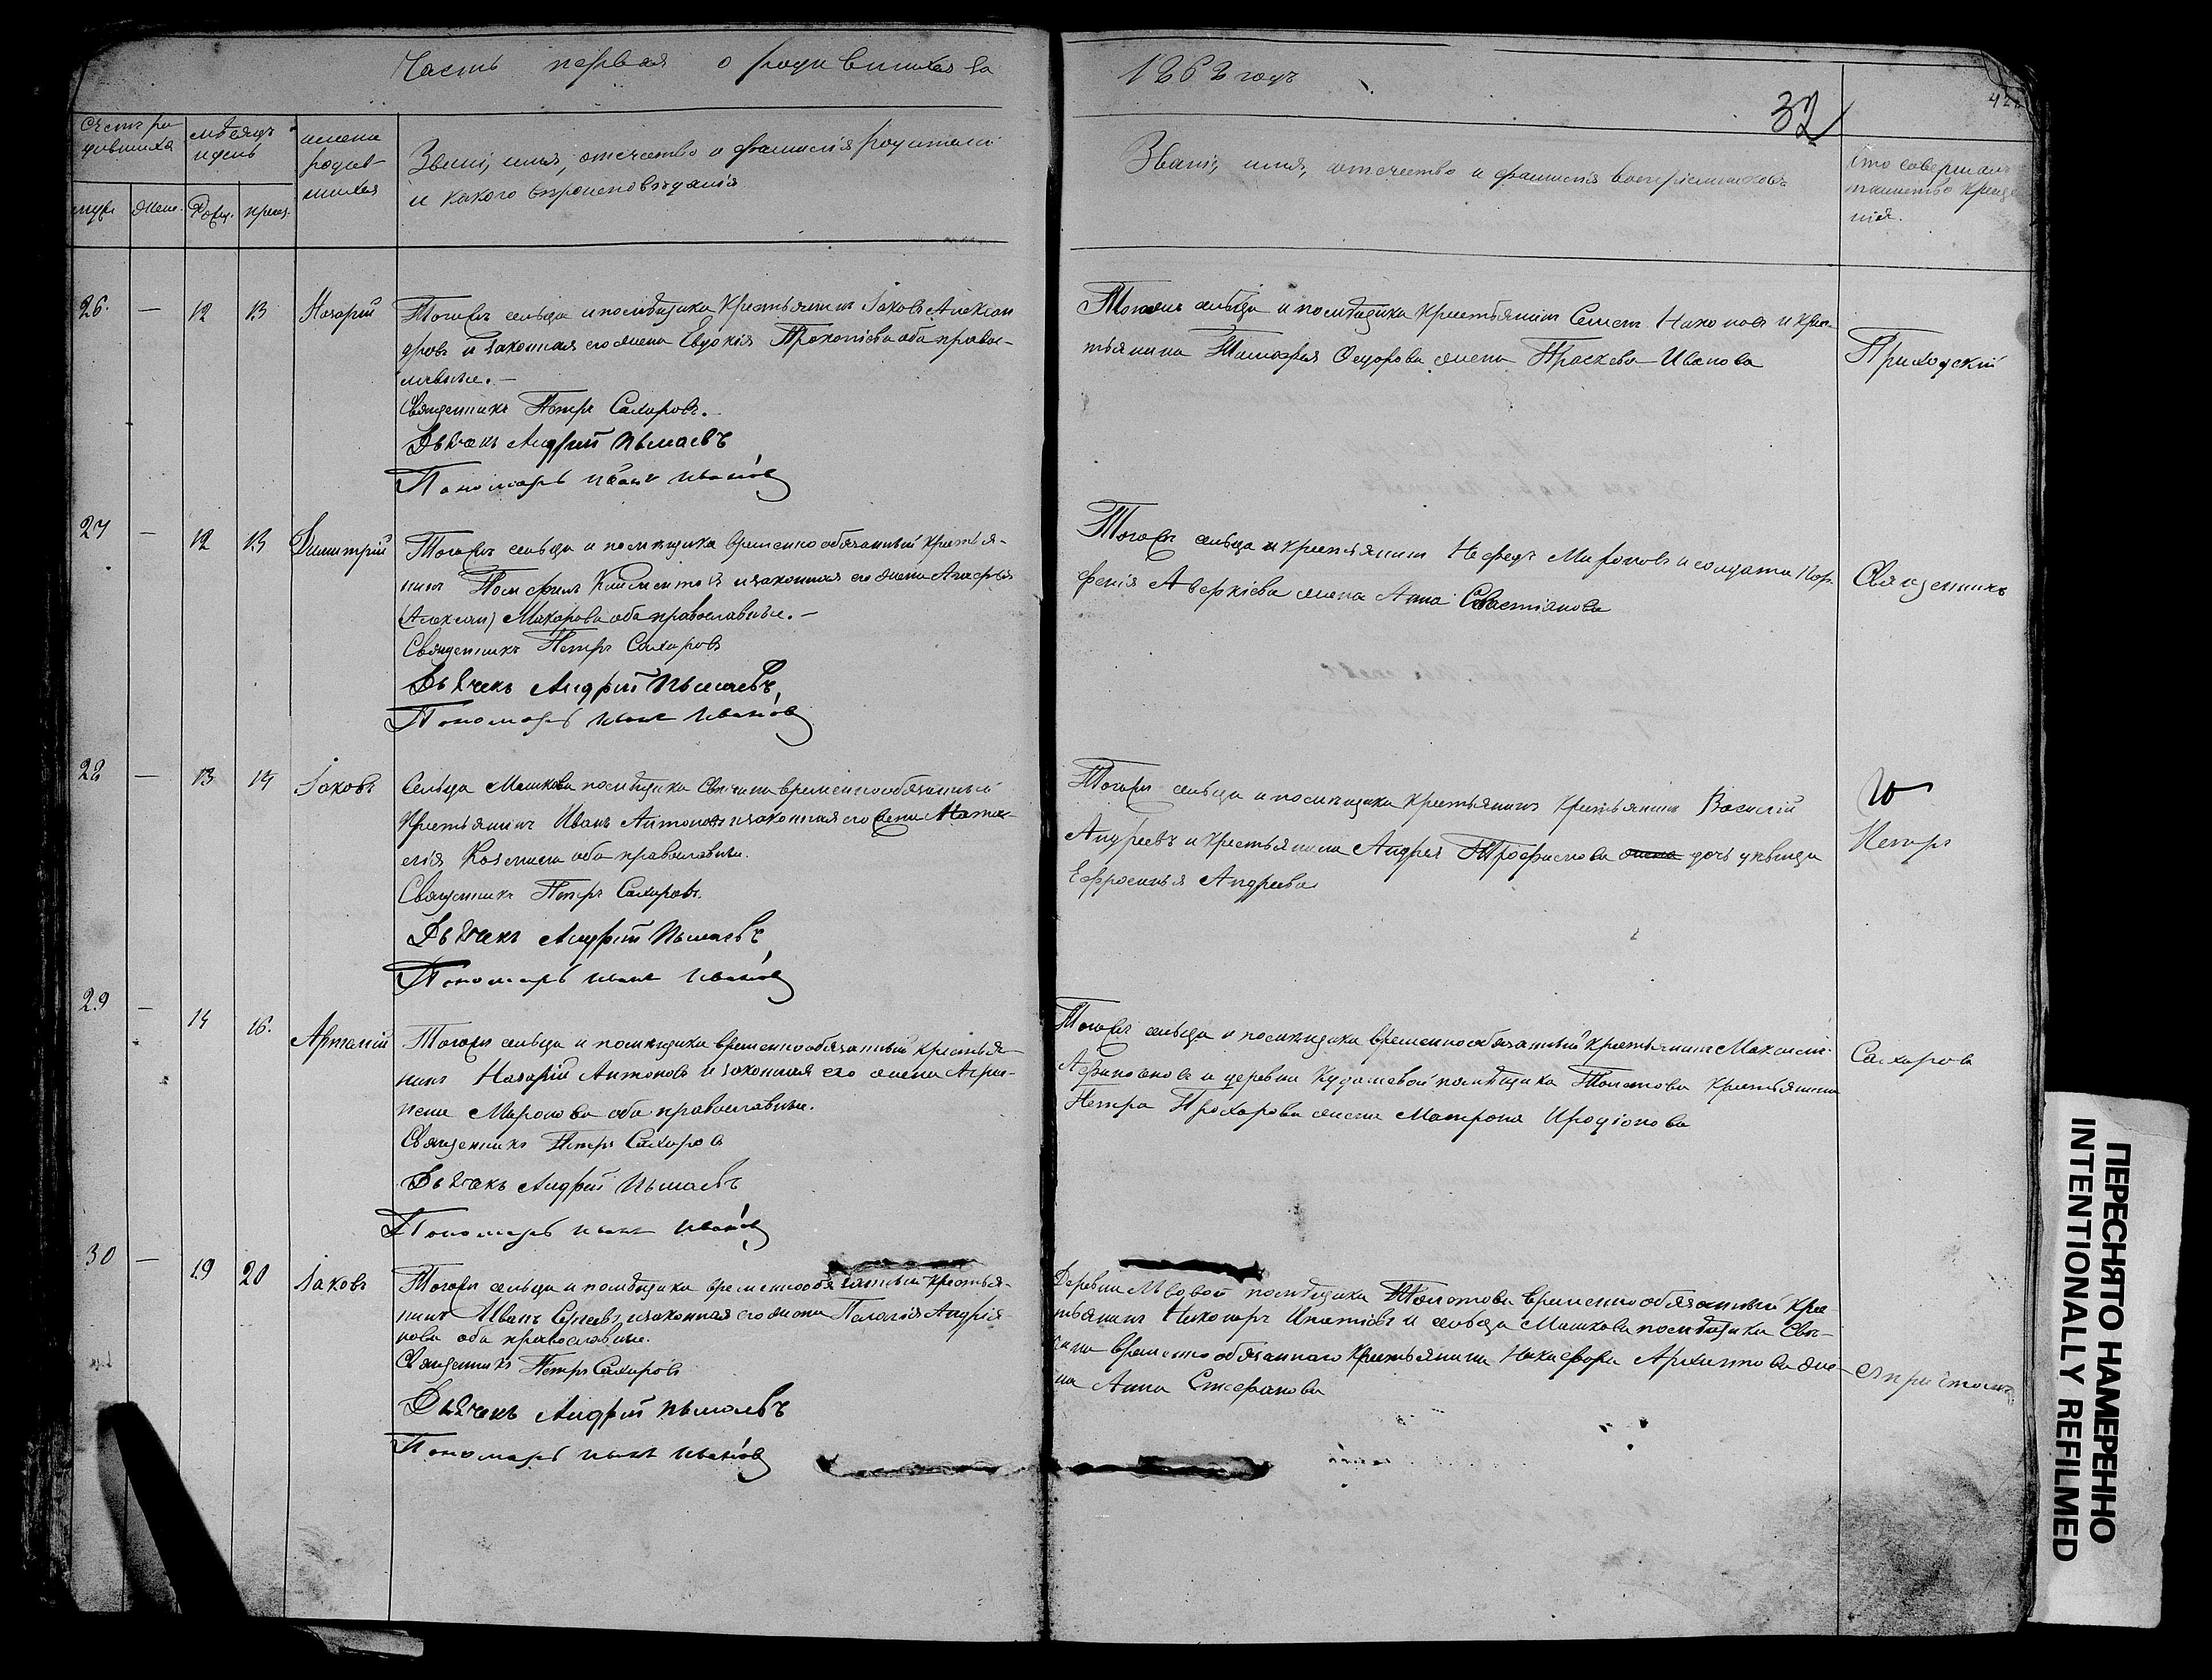 Часть первая о родившихся за
1863 годъ
32
Счетъ ро-
дившихся
мѣсяцъ
и день
имена
родив-
шихся
Званiе, имя, отечество и фамилiя родителей
и какого вѣроисповѣданiя
муж.
жен.
Рожд.
крещ.
Званiе, имя, отечество и фамилiя воспрiемниковъ
Кто совершалъ
таинство креще-
нiя.
26. — 12 13 Назарiй
Тогожъ сельца и помѣщика крестьянинъ Iаковъ Алексан
дровъ и законная его жена Евдокiя Прокопiева оба правос-
лавные. —
Священникъ Петръ Сахаровъ.
Дьячекъ Андрей
Пономарь Иванъ Ивановъ
Тогожъ сельца и помѣщика крестьянинъ Семенъ Никоновъ и крес-
тьянина Тимофея Федорова жена Праскева Иванова
Приходскiй
27 — 12 13 Димитрiй
Тогожъ сельца и помѣщика временно обязанный крестья-
нинъ Памфилъ Климентовъ и законная его жена Агафья
Макарова оба православные. —
Священникъ Петръ Сахаровъ
Дьячекъ Андрей
Пономарь Иванъ Ивановъ
Тогожъ сельца и крестьянинъ Нефедъ Мироновъ и солдата Пар-
фенiя Аверкiева жена Анна Севастiянова
Священникъ
28 — 13 14 Iаковъ
Сельца Машкова помѣщика временнообязанный
крестьянинъ Иванъ Антоновъ и законная его жена Ната-
лiя Козмина оба православные.
Священникъ Петръ Сахаровъ.
Дьячекъ Андрей
Пономарь Иванъ Ивановъ
Тогожъ сельца и помѣщика крестьянинъ крестьянинъ Василiй
Андреевъ и крестьянина Андрея Трофимова жена дочь дѣвица
Ефросинья Андреева
Петръ
29 — 14 16. Артемiй
Тогожъ сельца и помѣщика временно обязанный крестья-
нинъ Назарiй Антоновъ и законная его жена Агри-
пена Миронова оба православные.
Священникъ Петръ Сахаровъ
Дьячекъ Андрей
Пономарь Иванъ Ивановъ
Тогожъ сельца и помѣщика временнообязанный крестьянинъ Максимъ
и деревни помѣщика Толстова крестьянина
Петра Прохорова жена Матрона Иродiонова
Сахаровъ
30 — 19 20 Iаковъ
Тогожъ сельца и помѣщика временнообязанный крестья-
нинъ Иванъ Сергеевъ и законная его жена Палагiя Андрiя-
нова оба православные.
Священникъ Петръ Сахаровъ
Дьячекъ Андрей
Пономарь Иванъ Ивановъ
Деревни Львовой помѣщика Толстова временно обязанный крес-
тьянинъ Никаноръ Игнатiевъ и сельца Машкова помѣщика
временно обязаннаго крестьянина Никифора Архиппова же-
на Анна Стефанова
съ причтомъ
ПЕРЕСНЯТО НАМЕРЕННО
INTENTIONALLY REFILMED